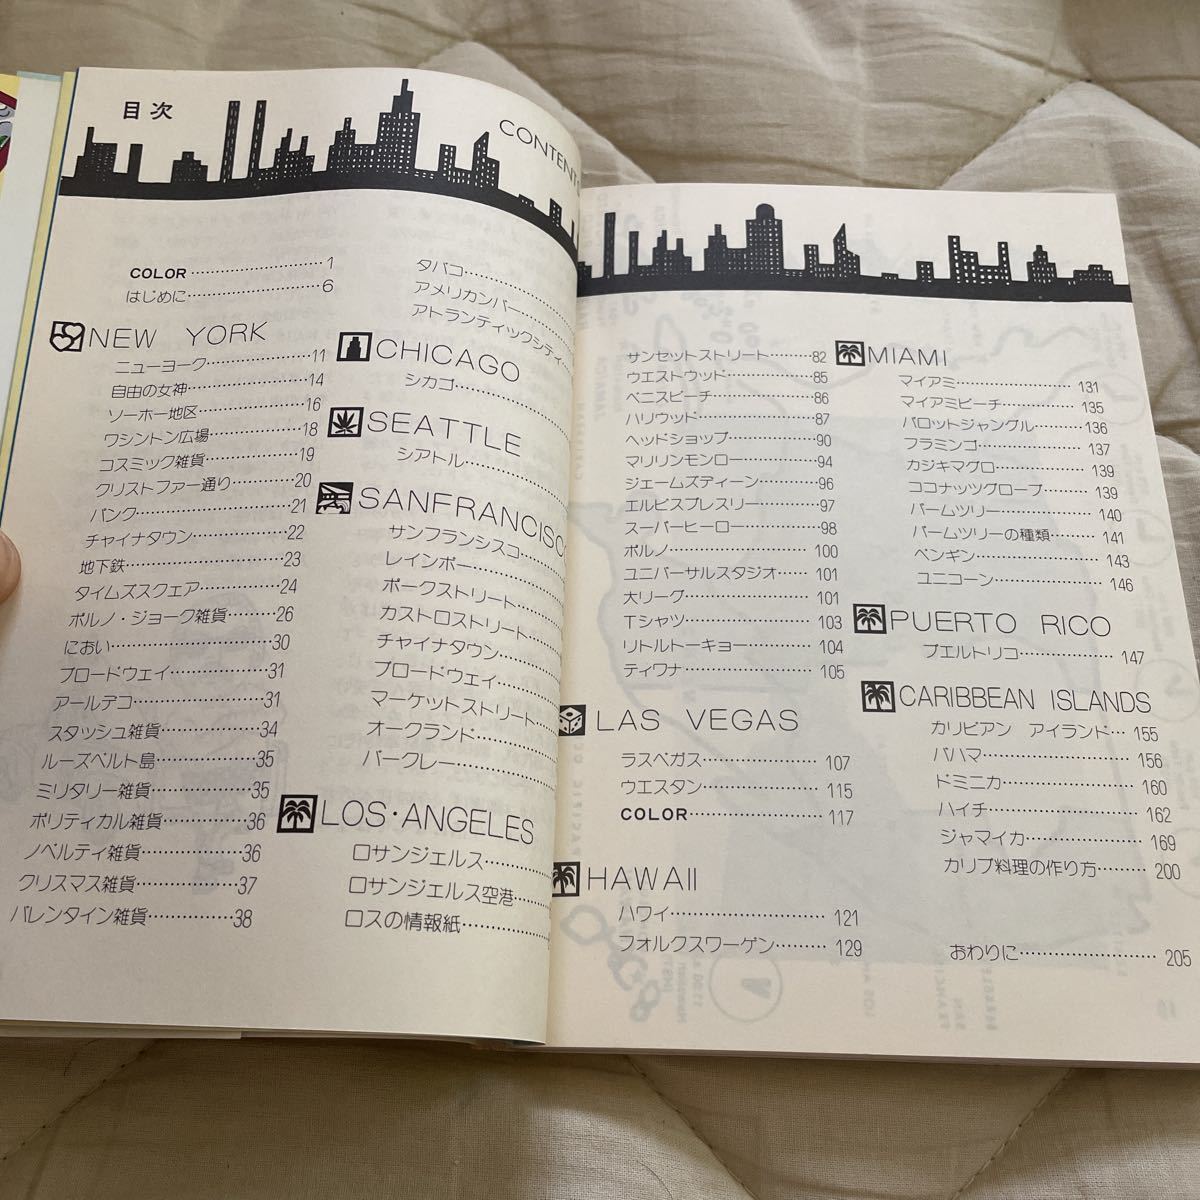 目次
CONTENTS
COLOR 1
はじめに 6
NEW YORK
ニューヨーク 11
自由の女神 14
ソーホー地区 16
ワシントン広場 18
コスミック雑貨 19
クリストファー通り 20
バンク 21
チャイナタウン 22
地下鉄 23
タイムズスクェア 24
ポルノ・ジョーク雑貨 26
におい 30
ブロードウェイ 31
アールデコ 31
スタッシュ雑貨 34
ルーズベルト島 35
ミリタリー雑貨 35
ポリティカル雑貨 36
ノベルティ雑貨 36
クリスマス雑貨 37
バレンタイン雑貨 38
タバコ
アメリカンバー
アトランティックシティ
CHICAGO
シカゴ
SEATTLE
シアトル
SANFRANCISCO
サンフランシスコ
レインボー
ポークストリート
カストロストリート
チャイナタウン
ブロードウェイ
マーケットストリート
オークランド
バークレー
LOS・ANGELES
ロサンジェルス
ロサンジェルス空港
ロスの情報紙
サンセットストリート 82
ウエストウッド 85
ベニスビーチ 86
ハリウッド 87
ヘッドショップ 90
マリリンモンロー 94
ジェームズディーン 96
エルビスプレスリー 97
スーパーヒーロー 98
ポルノ 100
ユニバーサルスタジオ 101
大リーグ 101
Tシャツ 103
リトルトーキョー 104
ティワナ 105
LAS VEGAS
ラスベガス 107
ウエスタン 115
COLOR 117
HAWAII
ハワイ 121
フォルクスワーゲン 129
MIAMI
マイアミ 131
マイアミビーチ 135
パロットジャングル 136
フラミンゴ 137
カジキマグロ 139
ココナッツグローブ 139
パームツリー 140
パームツリーの種類 141
ペンギン 143
ユニコーン 146
PUERTO RICO
プエルトリコ 147
CARIBBEAN ISLANDS
カリビアン アイランド 155
バハマ 156
ドミニカ 160
ハイチ 162
ジャマイカ 169
カリブ料理の作り方 200
おわりに 205